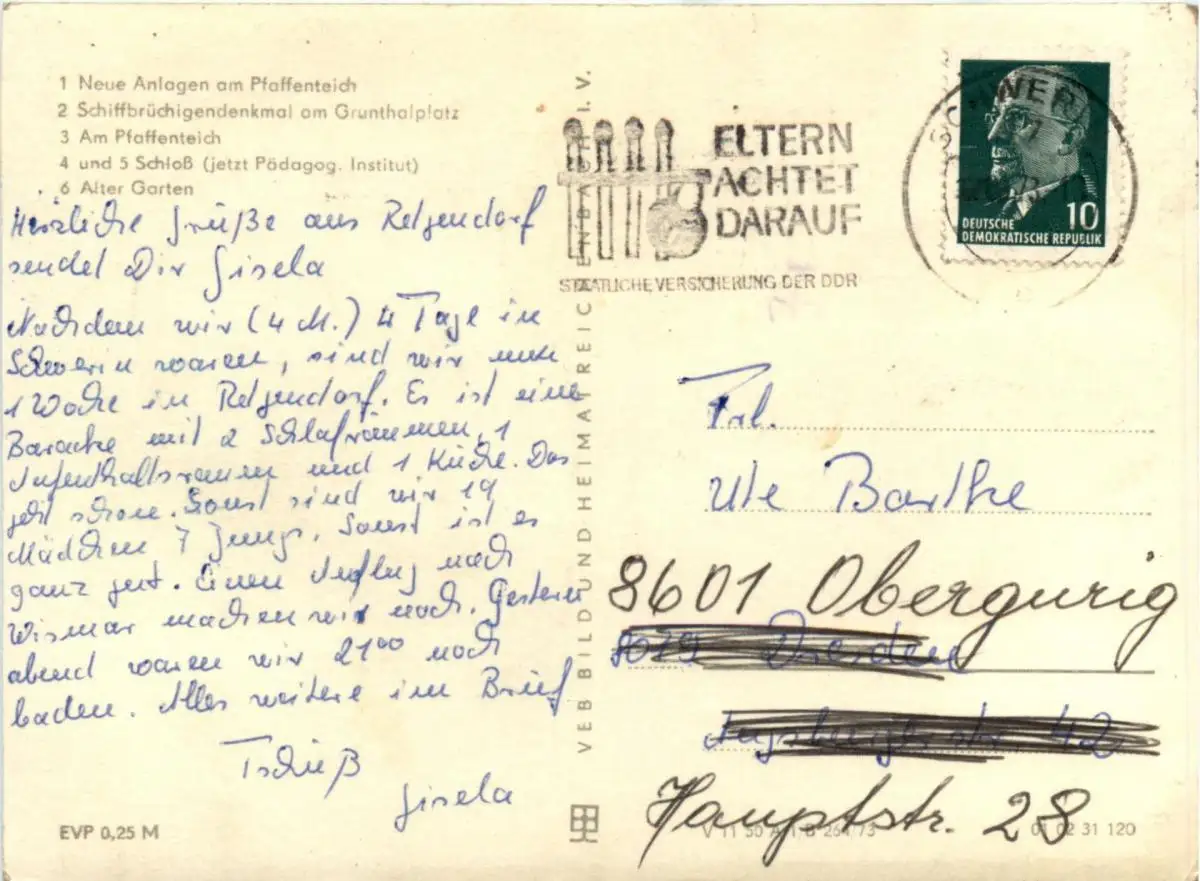 1 Neue Anlagen am Pfaffenteich
2 Schiffbrüchigendenkmal am Grunthalplatz
3 Am Pfaffenteich
4 und 5 Schloß (jetzt Pädagog. Institut)
6 Alter Garten
Herzliche Grüße aus Retgendorf
sendet Dir Gisela
Nachdem wir (4 M.) 4 Tage in
Schwerin waren, sind wir nun
1 Woche in Retgendorf. Es ist eine
Baracke mit 2 Schlafräumen, 1
Aufenthaltsraum und 1 Küche. Das
geht schon. Sonst sind wir 19
Mädchen 7 Jungs. Sonst ist es
ganz gut. Einen Ausflug nach
Wismar machen wir noch. Gestern
abend waren wir 21⁰⁰ noch
baden. Alles weitere im Brief
Tschüß
Gisela
EVP 0,25 M
VEB BILD UND HEIMAT REICHENBACH I. V.
ELTERN
ACHTET
DARAUF
STAATLICHE VERSICHERUNG DER DDR
SCHWERIN
10
DEUTSCHE
DEMOKRATISCHE REPUBLIK
Frl.
Ute Barthe
8601 Obergurig
8019 Dresden
Augsburger Str. 42
Hauptstr. 28
01 02 31 120